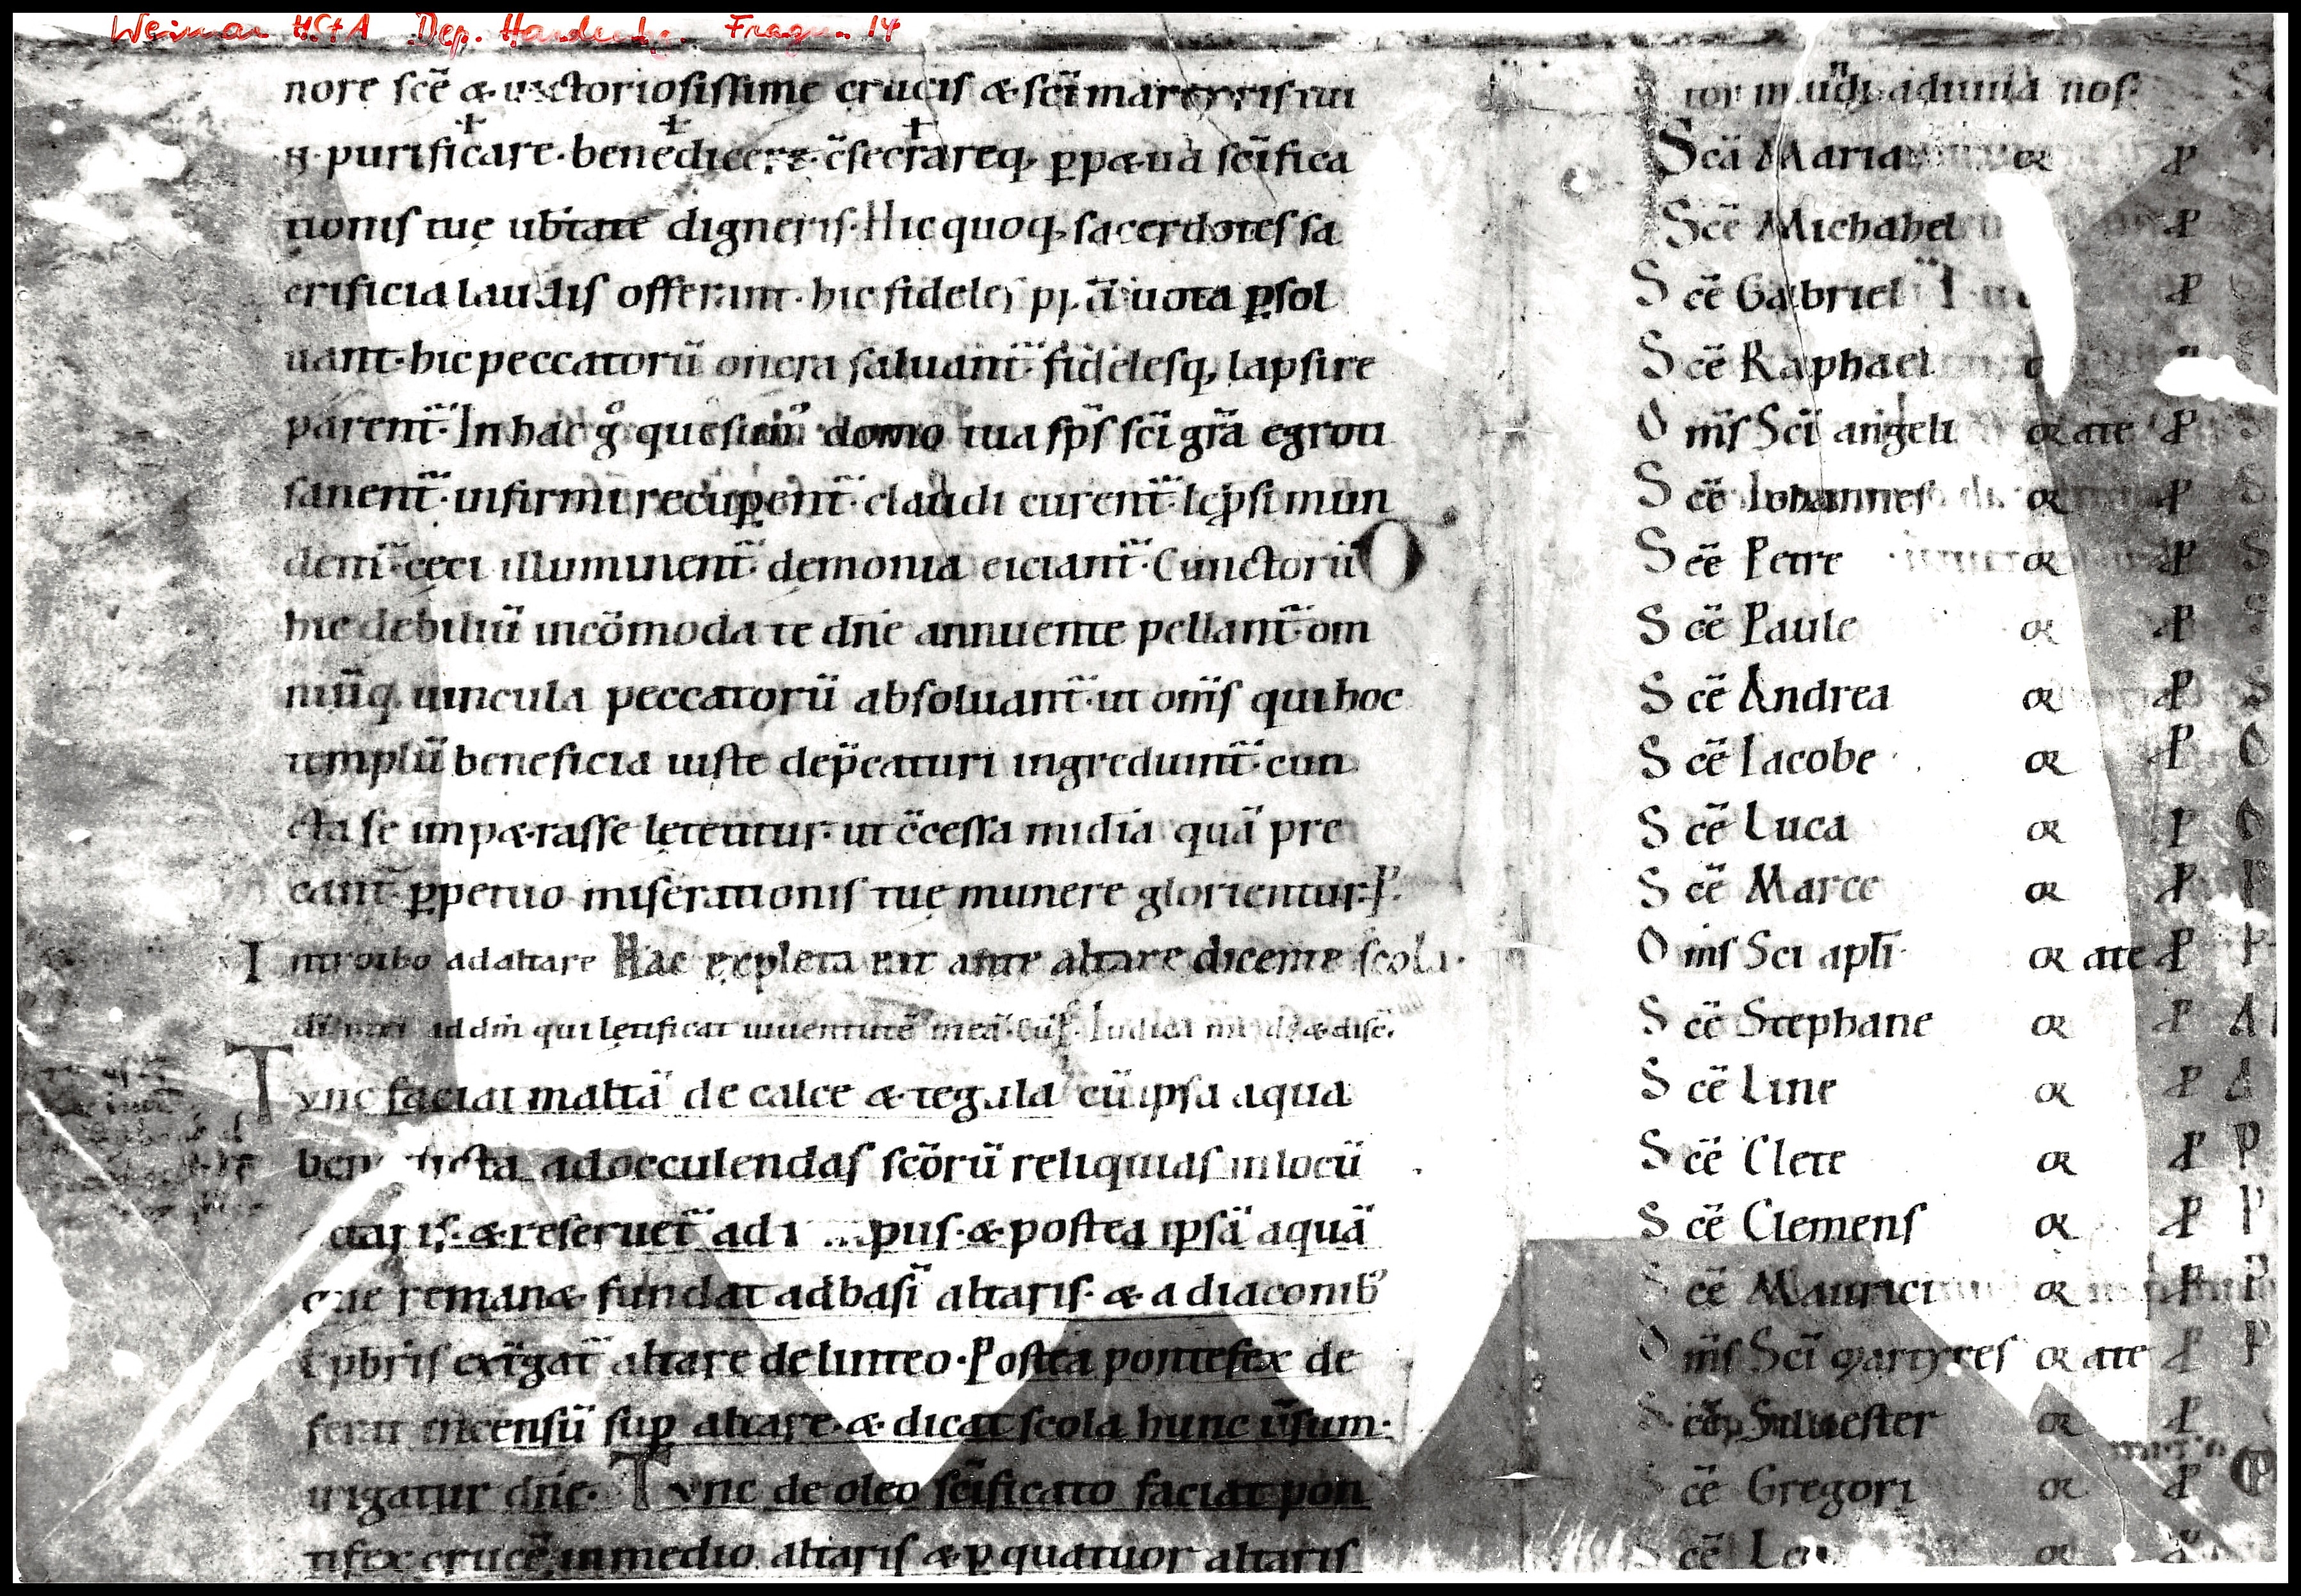 Weimar HStA Dep. Hardenbg. Fragm. 14
nore scē & uictoriosissime crucis & sc̄i martyris tui
N. purificare. benedicere. c̄secrareq; ꝑp&ua sc̄ifica
tionis tuę ub̄tate digneris. Hic quoq; sacerdotes sa
crificia laudis offerant. hic fideles pp̄li uota ꝑsol
uant. hic peccatorū onera saluant̄. fidelesq; lapsi re
parent̄. In hac gͦ quesumꝰ domo tua sp̄s sc̄i gr̄a egroti
sanent̄. infirmi recuꝑent̄. claudi curent̄. lep̄si mun
dent̄. cęci illuminent̄. demonia eiciant̄. Cunctorū
hic debiliū incōmoda te dn̄e annuente pellant̄. om
niūq; uincula peccatorū absoluant̄. ut om̄s qui hoc
templū beneficia iuste dep̄caturi ingrediunt̄. cun
cta se imp&rasse lętentur. ut c̄cessa mīdia quā pre
cant̄. ꝑpetuo miserationis tuę munere glorientur. P.
Introibo ad altare Hac expleta eat ante altare dicente scola.
ad dm̄ qui lętificat iuuentutē meā. Iudica & disc̄.
Tvnc faciat maltā de calce & tegula cū ipsa aqua
benedicta ad occulendas sc̄orū reliquias in locū
altaris. & reseruet̄ ad pus. & postea ipsā aquā
que reman& fundat ad basī altaris. & a diaconibꝰ
t pb̄ris extḡat̄ altare de linteo. Postea pontefex de
ferat incensū suꝑ altare. & dicat scola hunc ūsum.
irigatur dn̄e. Tvnc de oleo sc̄ificato faciat pon
tifex crucē in medio altaris & ꝑ quatuor altaris
tor mundi adiuua nos.
Scā Maria or P
Scē Michahel P
Scē Gabriel P
Scē Raphael
Om̄s Sc̄i angeli orate P
Scē Iohannes or P
Scē Petre or P
Scē Paule or P
Scē Andrea or P
Scē Iacobe or P
Scē Luca or P
Scē Marce or P
Om̄s Sci apl̄i orate P
Scē Stephane or P
Scē Line or P
Scē Clete or P
Scē Clemens or P
Scē Maurici or P
Om̄s Sc̄i martyres orate P
Scē Siluester or P
Scē Gregori or P
Scē or